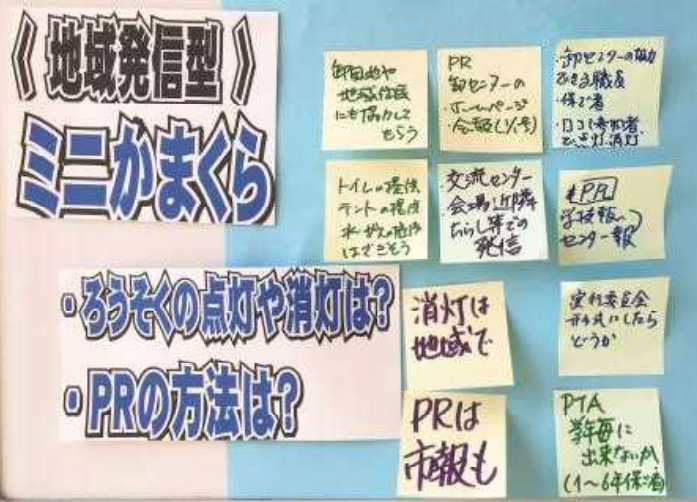 《地域発信型》
ミニかまくら
・ろうそくの点灯や消灯は?
・PRの方法は?
地域住民
にも協力して
もらう
PR
卸センターの
・ホームページ
・会報(1/1号)
・卸センターの協力
できる職員
・保ゴ者
・口コミ参加者
で点灯.消灯
トイレの提供
テントの提供
はできそう
・交流センター
会場近隣
ちらし等での
発信
PR
学校報へ
センター報
消灯は
地域で
実行委員会
形式にしたら
どうか
PRは
市報も
PTA
学年毎に
出来ないか
(1〜6年保ゴ者)